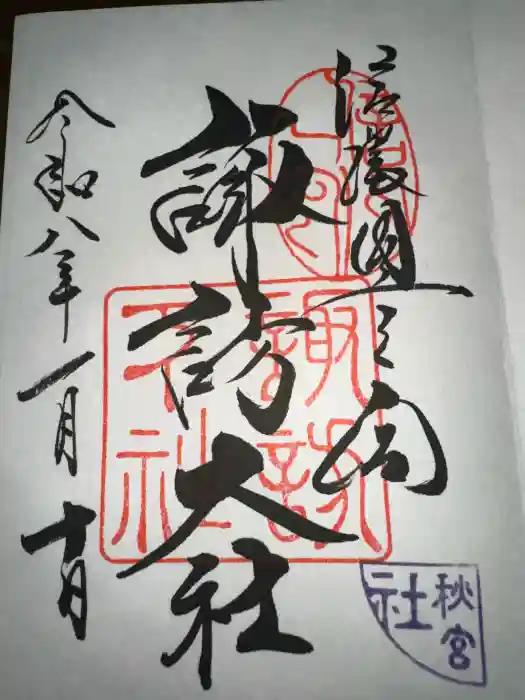 信濃國一之宮
諏訪大社
令和八年一月十日
諏訪
下社
秋宮
社